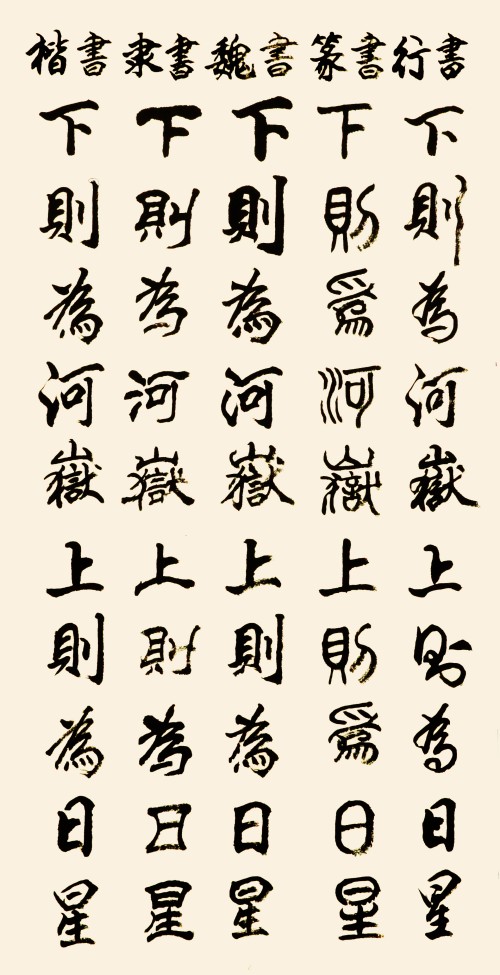 楷書
下則為河嶽上則為日星
隶書
下則為河嶽上則為日星
魏書
下則為河嶽上則為日星
篆書
下則爲河嶽上則爲日星
行書
下則為河嶽上則為日星